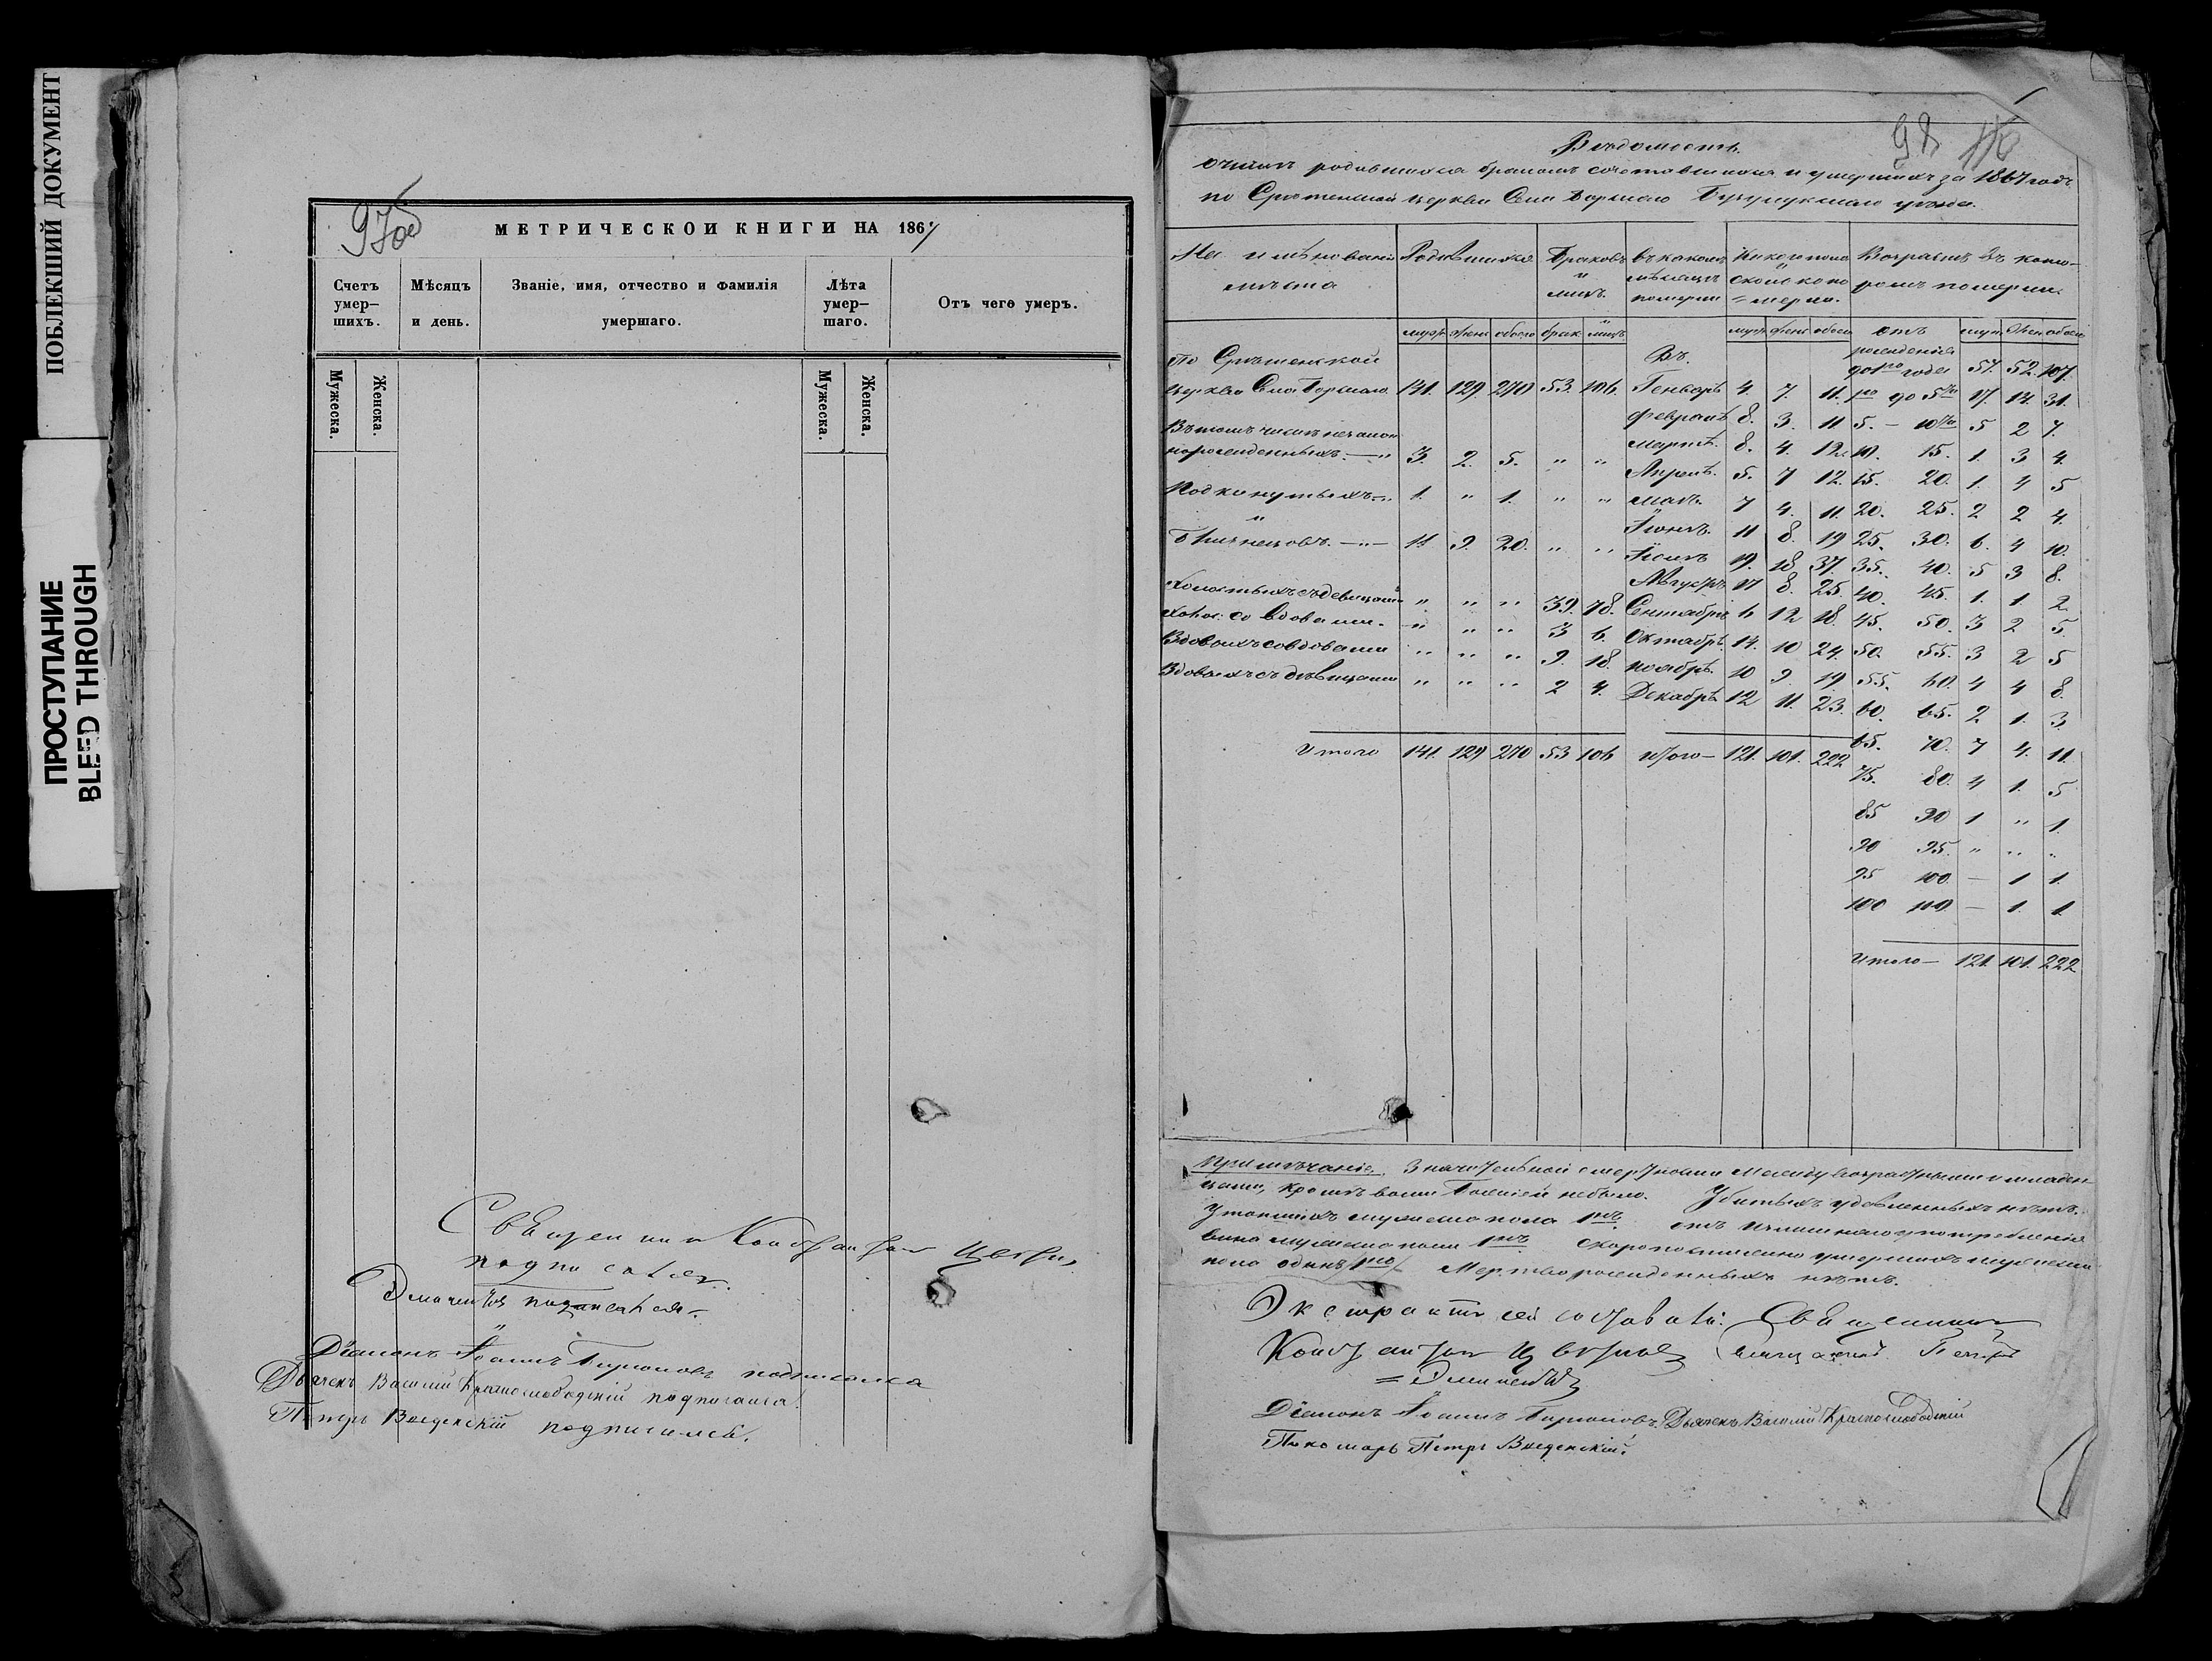 ПОБЛЕКШИЙ ДОКУМЕНТ
ПРОСТУПАНИЕ
BLEED THROUGH
97об
МЕТРИЧЕСКОЙ КНИГИ НА 1867
Счетъ умер-шихъ. Мѣсяцъ и день. Званіе, имя, отчество и фамилія умершаго. Лѣта умер-шаго. Отъ чего умеръ.
Мужеска. Женска. Мужеска. Женска.
Священникъ Константинъ
подписался.
подписался
Діаконъ Іоаннъ подписался
Дьячекъ Василій Краснослободскій подписался.
Петръ Введенскій подписался.
98
Вѣдомость
о числѣ родившихся бракомъ сочетавшихся и умершихъ за 1867 годъ
по Срѣтенской церкви Села Борскаго Бузулукскаго уѣзда.
Наименованіе мѣста Родившихся Браковъ и лицъ. въ какомъ мѣсяцѣ померли Какого пола и сколько померло. Возрастъ въ кото-ромъ померли.
муж. жен. обоего брак. лицъ муж. жен. обоего отъ муж. жен. обоего
По Срѣтенской Въ рожденія до 1го года 57. 52. 107.
церкви Села Борскаго. 141. 129. 270 53. 106. Генварѣ 4. 7. 11. 1го до 5ти 17. 14. 31.
Въ томъ числѣ незаконнорожденныхъ — 3. 2. 5. " "
Февралѣ 8. 3. 11 5. — 10ти 5 2 7.
Мартѣ. 8. 4. 12. 10. 15. 1. 3 4.
Подкинутыхъ — 1. " 1. " "
Апрелѣ. 5. 7 12. 15. 20. 1. 4 5
Маѣ. 7 4. 11. 20. 25. 2 2 4.
и
Близнецовъ. — 11 9. 20. " "
Іюнѣ. 11 8. 19 25. 30. 6. 4 10.
Іюлѣ 19. 18 37. 35. 40. 5 3 8.
Августѣ 17 8. 25. 40. 45. 1. 1. 2.
Холостыхъ съ девицами " " " 39. 78. Сентябрѣ 6 12 18. 45. 50. 3 2 5.
Холос. со вдовами. " " " 3 6. Октябрѣ. 14. 10 24. 50. 55. 3 2 5
Вдовыхъ со вдовами " " " 9. 18. Ноябрѣ. 10 9. 19. 55. 60. 4 4 8.
Вдовыхъ съ дѣвицами " " " 2 4. Декабрѣ 12 11. 23. 60. 65. 2 1. 3
65. 70. 7 4. 11.
Итого 141. 129 270 53 106 Итого — 121. 101. 222
75. 80. 4 1. 5
85 90 1 " 1.
90 95. " " "
95 100. — 1 1.
100 110. — 1. 1.
Итого — 121. 101. 222
Примѣчаніе. Значительной смертности между возрастными и младен
цами, кромѣ болезней небыло. Убитыхъ удавленныхъ нѣтъ.
Утопшихъ мужеска пола 1нъ. отъ излишняго употребленія
вина мужеска пола 1нъ. Скоропостижно умершихъ мужеска
пола одинъ. Мертворожденныхъ нѣтъ.
Экстрактъ сей составляли: Священникъ
Константинъ
Діаконъ Іоаннъ Дьячекъ Василій Краснослободскій
Пономарь Петръ Введенскій.